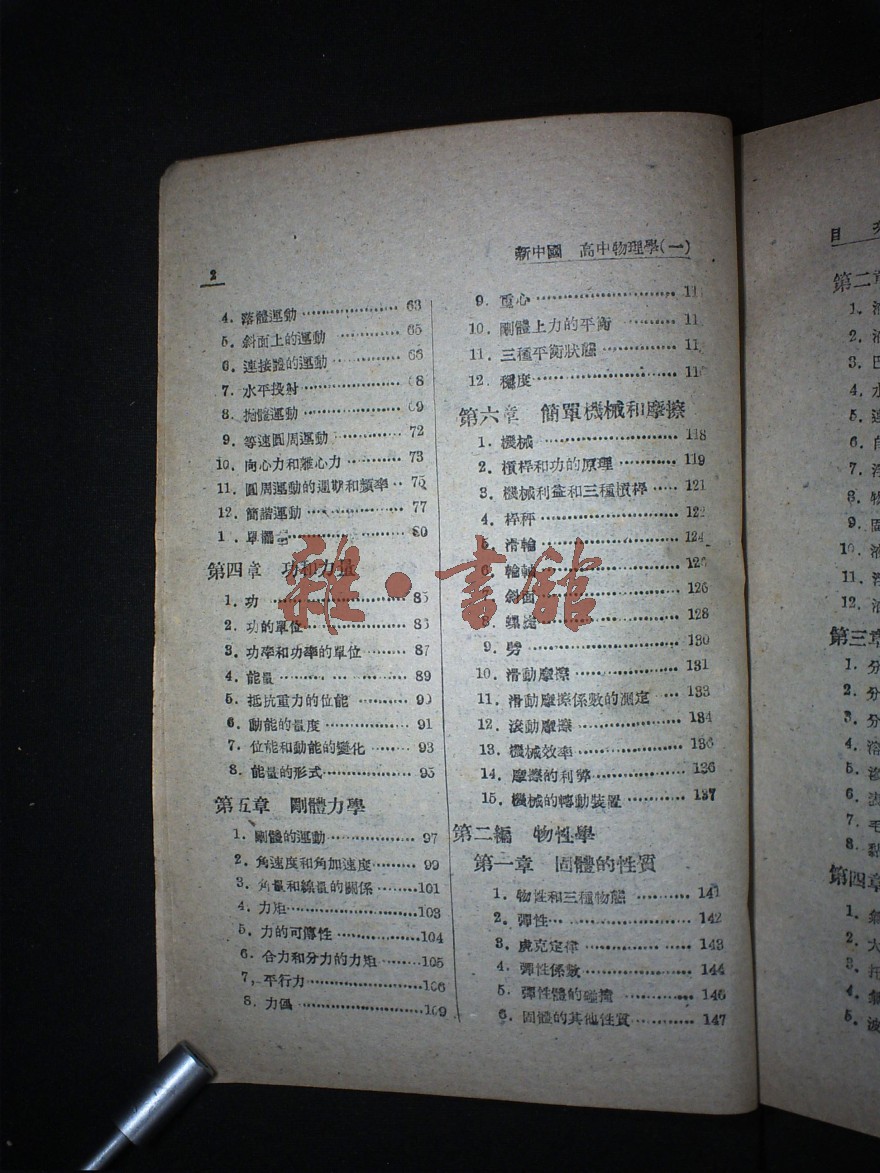 2
新中國 高中物理學(一)
4. 落體運動 63
5. 斜面上的運動 65
6. 連接體的運動 66
7. 水平投射 68
8. 拋體運動 69
9. 等速圓周運動 72
10. 向心力和離心力 73
11. 圓周運動的週期和頻率 75
12. 簡諧運動 77
80
第四章 功和力量
1. 功 85
2. 功的單位 86
3. 功率和功率的單位 87
4. 能量 89
5. 抵抗重力的位能 90
6. 動能的量度 91
7. 位能和動能的變化 93
8. 能量的形式 95
第五章 剛體力學
1. 剛體的運動 97
2. 角速度和角加速度 99
3. 角量和線量的關係 101
4. 力矩 103
5. 力的可傳性 104
6. 合力和分力的力矩 105
7. 平行力 106
8. 力偶 109
9. 重心 11
10. 剛體上力的平衡 11
11. 三種平衡狀態 11
12. 穩度 11
第六章 簡單機械和摩擦
1. 機械 118
2. 槓桿和功的原理 119
3. 機械利益和三種槓桿 121
4. 桿秤 122
5. 滑輪 124
6. 輪軸
7. 斜面 126
8. 螺旋 128
9. 劈 130
10. 滑動摩擦 131
11. 滑動摩擦係數的測定 133
12. 滾動摩擦 134
13. 機械效率 136
14. 摩擦的利弊 136
15. 機械的轉動裝置 137
第二編 物性學
第一章 固體的性質
1. 物性和三種物態 141
2. 彈性 142
3. 虎克定律 143
4. 彈性係數 144
5. 彈性體的碰撞 146
6. 固體的其他性質 147
雜·書館
目
第二
1.
2.
3.
4. 水
5.
6.
7. 浮
8. 物
9. 固
10.
11. 浮
12.
第三章
1. 分
2. 分
3. 分
4.
5.
6.
7. 毛
8.
第四章
1.
2. 大
3. 托
4.
5. 波